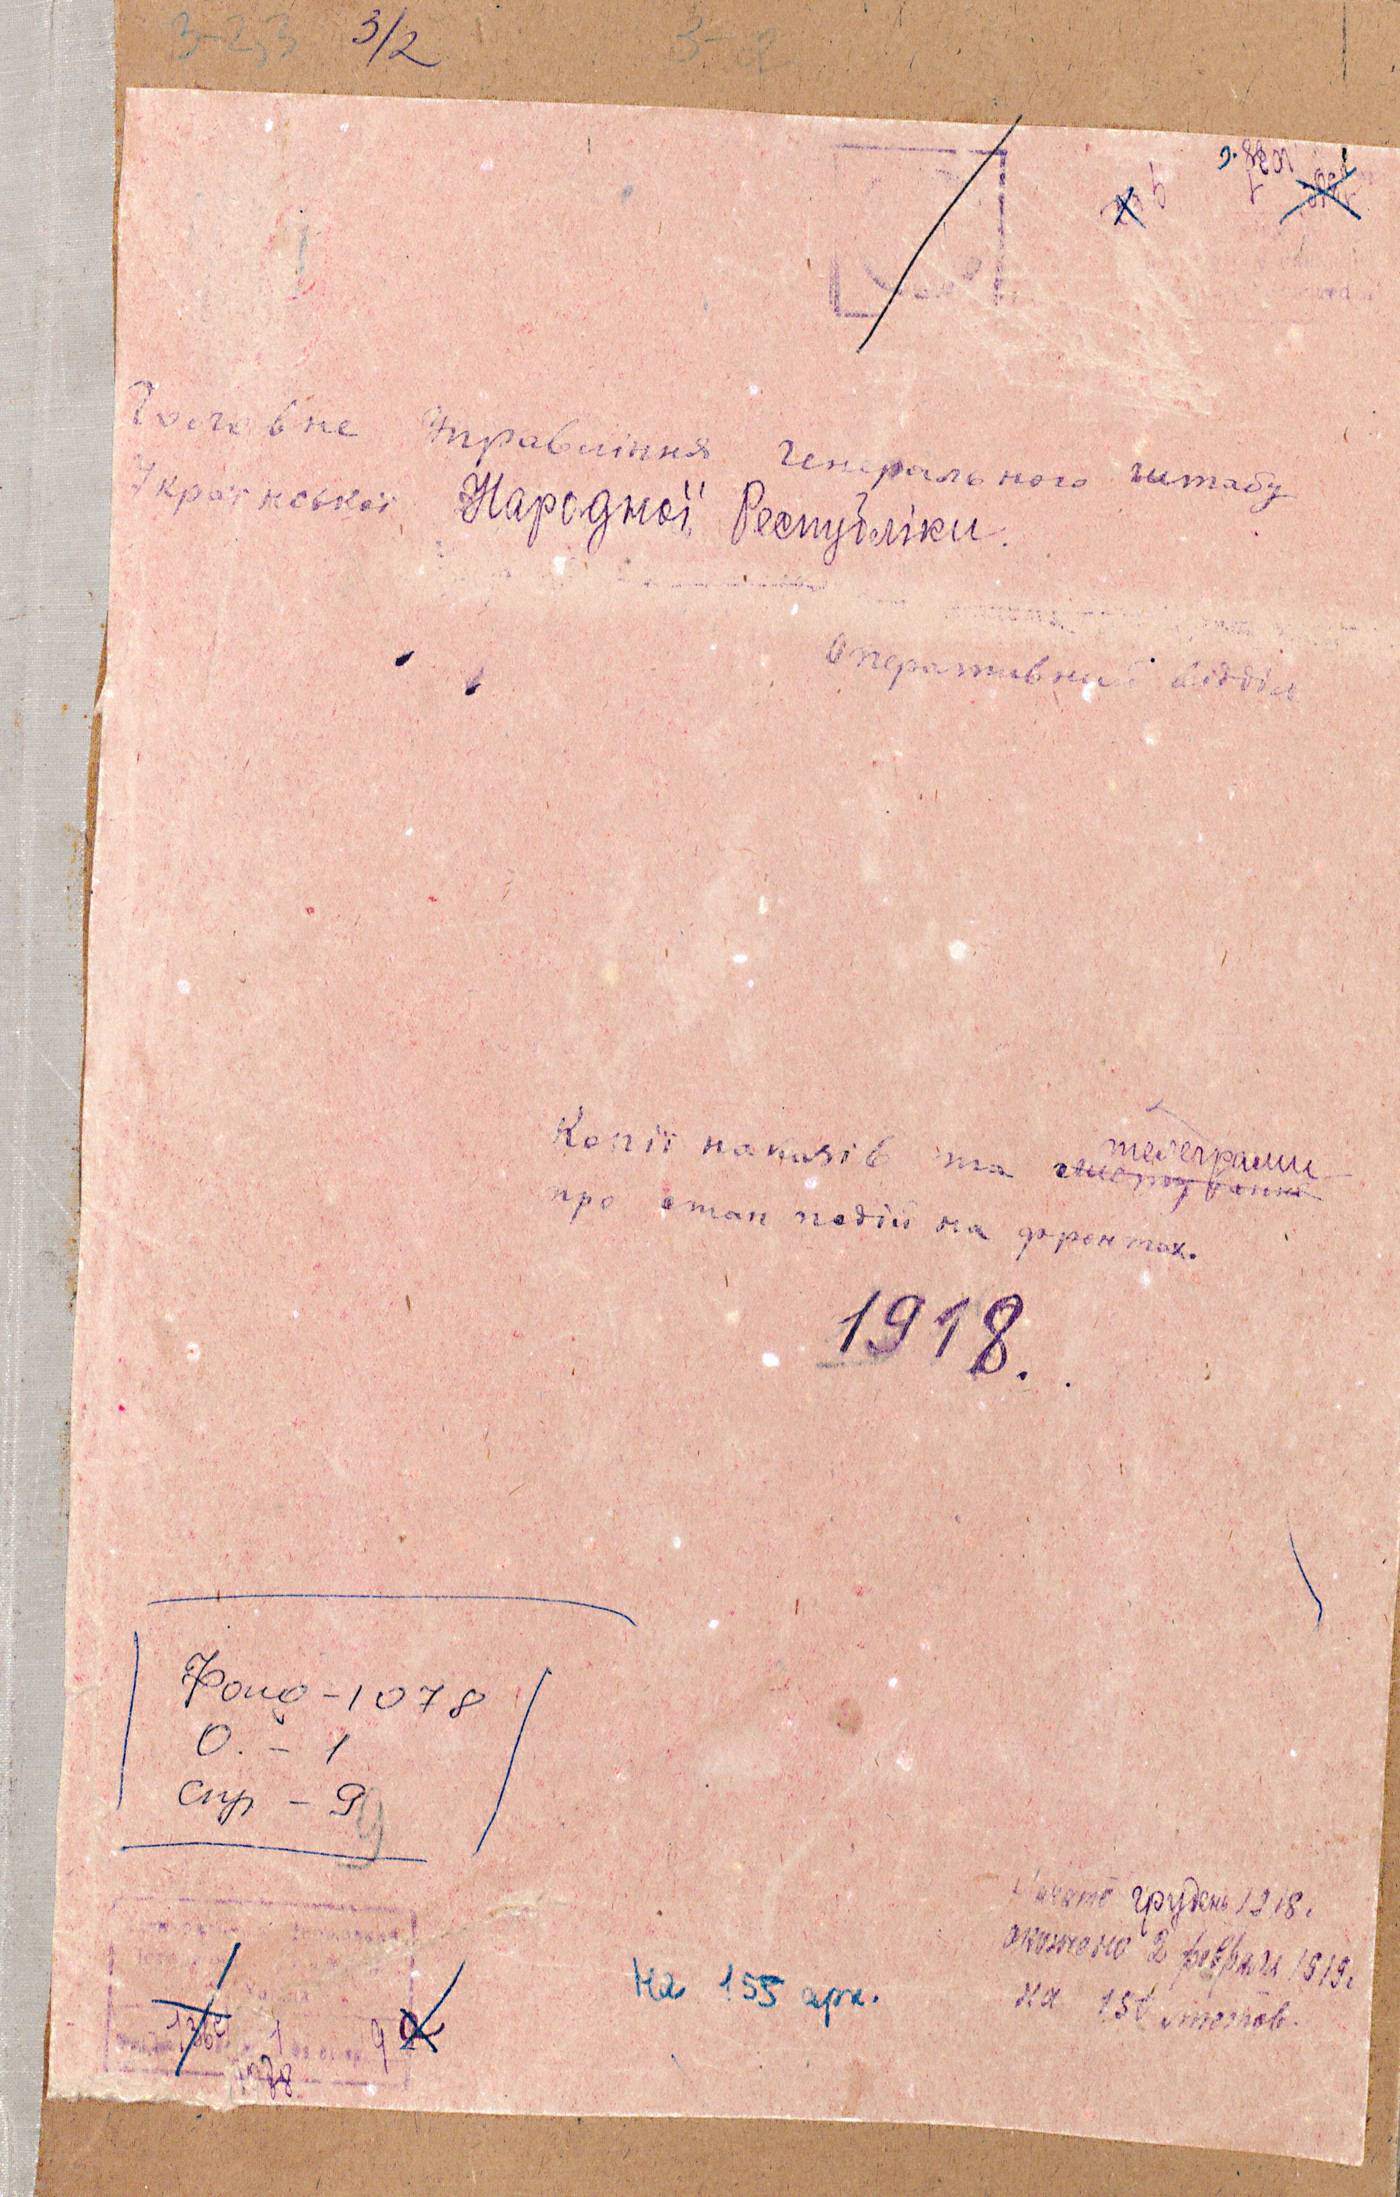 3-2,3 3/2 3-2
Головне Управління Генерального штабу
Української Народної Республіки.
Оперативний відділ
Копії наказів та телеграми
про стан подій на фронтах.
1918.
Фонд-1078
О. - 1
Спр - 9
Начато грудень 1918.
окончено 2 февраля 1919г
на 151 листов.
На 155 арк.
1
9
1078